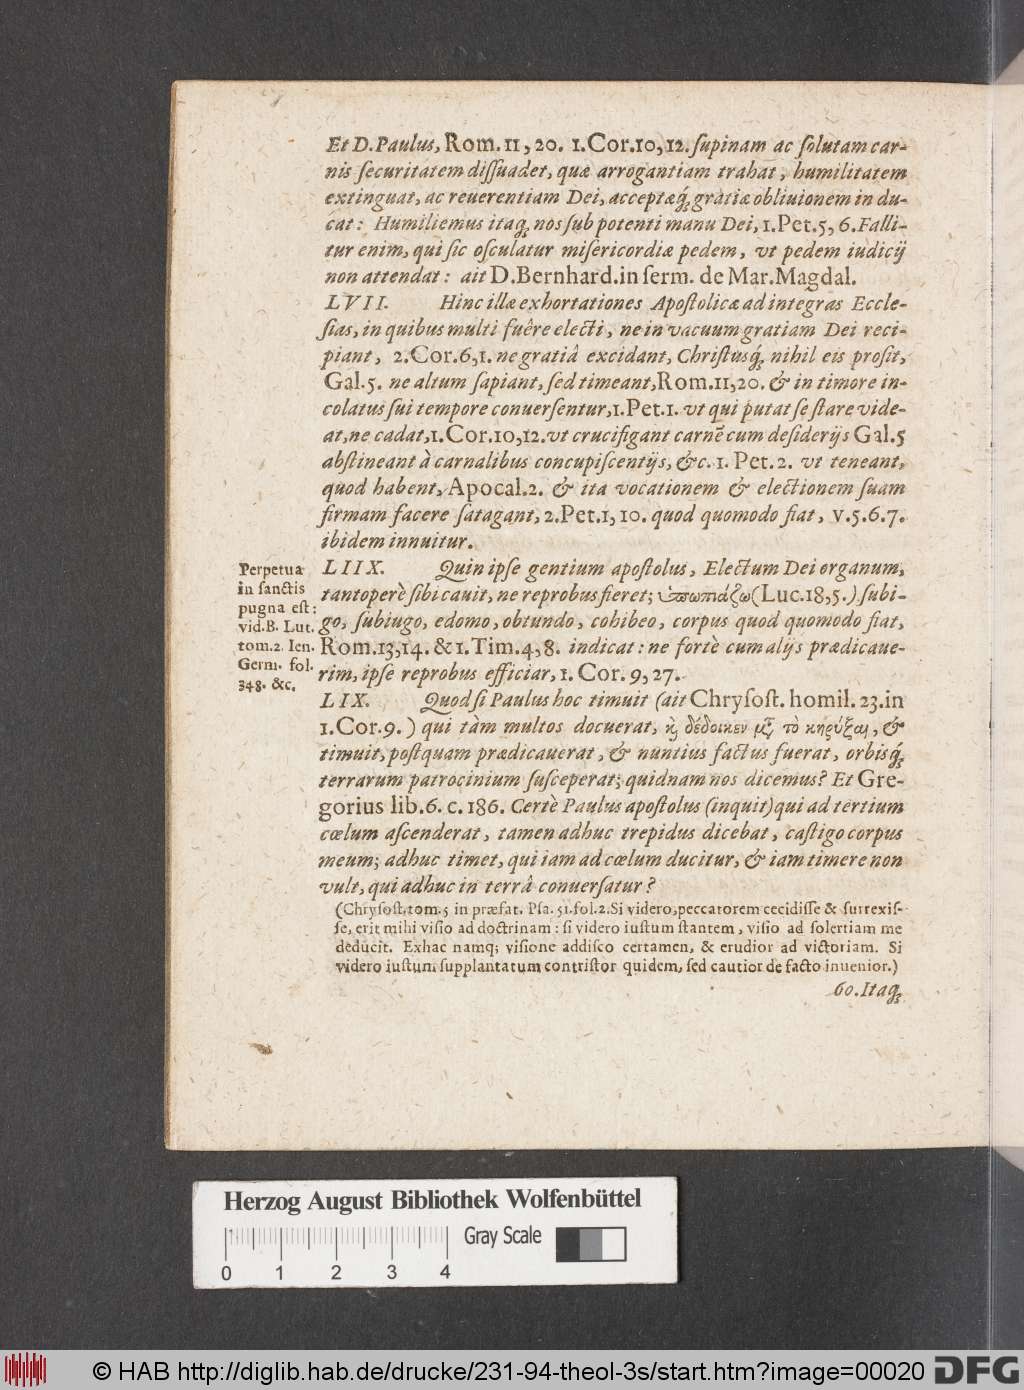 Et D. Paulus, Rom. 11, 20. 1. Cor. 10, 12. ſupinam ac ſolutam car-
nis ſecuritatem diſſuadet, quæ arrogantiam trahat, humilitatem
extinguat, ac reuerentiam Dei, acceptæq́; gratiæ obliuionem in du-
cat: Humiliemus itaq; nos ſub potenti manu Dei, 1. Pet. 5, 6. Falli-
tur enim, qui ſic oſculatur miſericordiæ pedem, vt pedem iudicij
non attendat: ait D. Bernhard. in ſerm. de Mar. Magdal.
LVII. Hinc illæ exhortationes Apoſtolicæ ad integras Eccle-
ſias, in quibus multi fuêre electi, ne in vacuum gratiam Dei reci-
piant, 2. Cor. 6, 1. ne gratiâ excidant, Chriſtusq́; nihil eis proſit,
Gal. 5. ne altum ſapiant, ſed timeant, Rom. 11, 20. & in timore in-
colatus ſui tempore conuerſentur, 1. Pet. 1. vt qui putat ſe ſtare vide-
at, ne cadat, 1. Cor. 10, 12. vt crucifigant carnē cum deſiderijs Gal. 5
abſtineant à carnalibus concupiſcentijs, &c. 1. Pet. 2. vt teneant,
quod habent, Apocal. 2. & ita vocationem & electionem ſuam
firmam facere ſatagant, 2. Pet. 1, 10. quod quomodo fiat, v. 5. 6. 7.
ibidem innuitur.
Perpetua
in ſanctis
pugna eſt:
vid. B. Lut.
tom. 2. Ien.
Germ. fol.
348. &c.
LIIX. Quin ipſe gentium apoſtolus, Electum Dei organum,
tantoperè ſibi cauit, ne reprobus fieret; ὑπωπιάζω (Luc. 18, 5.) ſubi-
go, ſubiugo, edomo, obtundo, cohibeo, corpus quod quomodo fiat,
Rom. 13, 14. & 1. Tim. 4, 8. indicat: ne fortè cum alijs prædicaue-
rim, ipſe reprobus efficiar, 1. Cor. 9, 27.
LIX. Quod ſi Paulus hoc timuit (ait Chryſoſt. homil. 23. in
1. Cor. 9.) qui tàm multos docuerat, ϗ δέδοικεν μ̃ τὸ κηρύξαι, &
timuit, poſtquam prædicauerat, & nuntius factus fuerat, orbisq́;
terrarum patrocinium ſuſceperat; quidnam nos dicemus? Et Gre-
gorius lib. 6. c. 186. Certè Paulus apoſtolus (inquit) qui ad tertium
cœlum aſcenderat, tamen adhuc trepidus dicebat, caſtigo corpus
meum; adhuc timet, qui iam ad cœlum ducitur, & iam timere non
vult, qui adhuc in terrâ conuerſatur?
(Chryſoſt. tom. 5 in præfat. Pſa. 51. fol. 2. Si videro, peccatorem cecidiſſe & ſurrexiſ-
ſe, erit mihi viſio ad doctrinam: ſi videro iuſtum ſtantem, viſio ad ſolertiam me
deducit. Ex hac namq; viſione addiſco certamen, & erudior ad victoriam. Si
videro iuſtum ſupplantatum contriſtor quidem, ſed cautior de facto inuenior.)
60. Itaq́;
Herzog August Bibliothek Wolfenbüttel
Gray Scale
0 1 2 3 4
© HAB http://diglib.hab.de/drucke/231-94-theol-3s/start.htm?image=00020
DFG